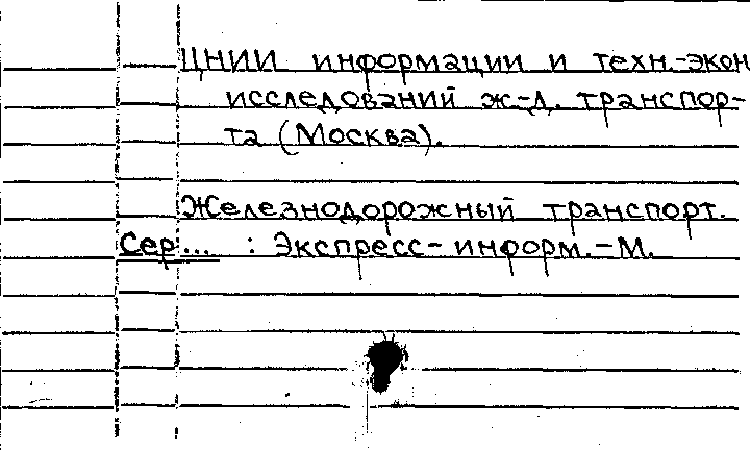 ЦНИИ информации и техн.-экон
исследований ж-д. транспор-
та (Москва).
Железнодорожный транспорт.
Сер... : Экспресс-информ.-М.